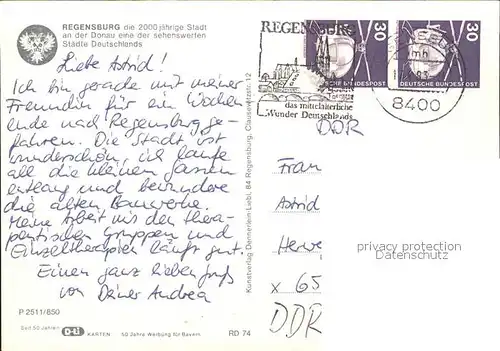 REGENSBURG die 2000jährige Stadt
an der Donau eine der sehenswerten
Städte Deutschlands
Liebe Astrid!
Ich bin gerade mit meiner
Freundin für ein Wochen
ende nach Regensburg ge-
fahren. Die Stadt ist
wunderschön, ich laufe
all die kleinen Gassen
entlang und bewundere
die alten Bauwerke.
Meine Arbeit mit den thera-
peutischen Gruppen und
Einzeltherapien läuft gut.
Einen ganz lieben Gruß
von Deiner Andrea
P 2511/850
Seit 50 Jahren KARTEN 50 Jahre Werbung für Bayern RD 74
Kunstverlag Dennerlein-Liebl, 84 Regensburg, Clausewitzstr. 12
REGENSBURG
das mittelalterliche
Wunder Deutschlands
30
30
DEUTSCHE BUNDESPOST
DEUTSCHE BUNDESPOST
8400
DDR
Frau
Astrid
x 65
DDR
privacy protection
Datenschutz